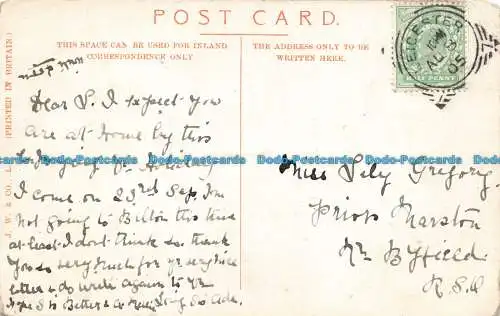 POST CARD.
THIS SPACE CAN BE USED FOR INLAND
CORRESPONDENCE ONLY
THE ADDRESS ONLY TO BE
WRITTEN HERE.
LEICESTER
AU
05
HALFPENNY
J. W. & CO. (PRINTED IN BRITAIN.)
Dear L. I expect you
are at home by this
I come on 23rd Sep. I'm
not going to Bilton this time
at least I dont think so. thank
you so very much for yr very nice
letter & do write again to yr
Miss Lily Gregory
Priors Marston
Nr Byfield
R.S.O
Dodo-Postcards Dodo-Postcards Dodo-Postcards Dodo-Postcards Dodo-Postcards